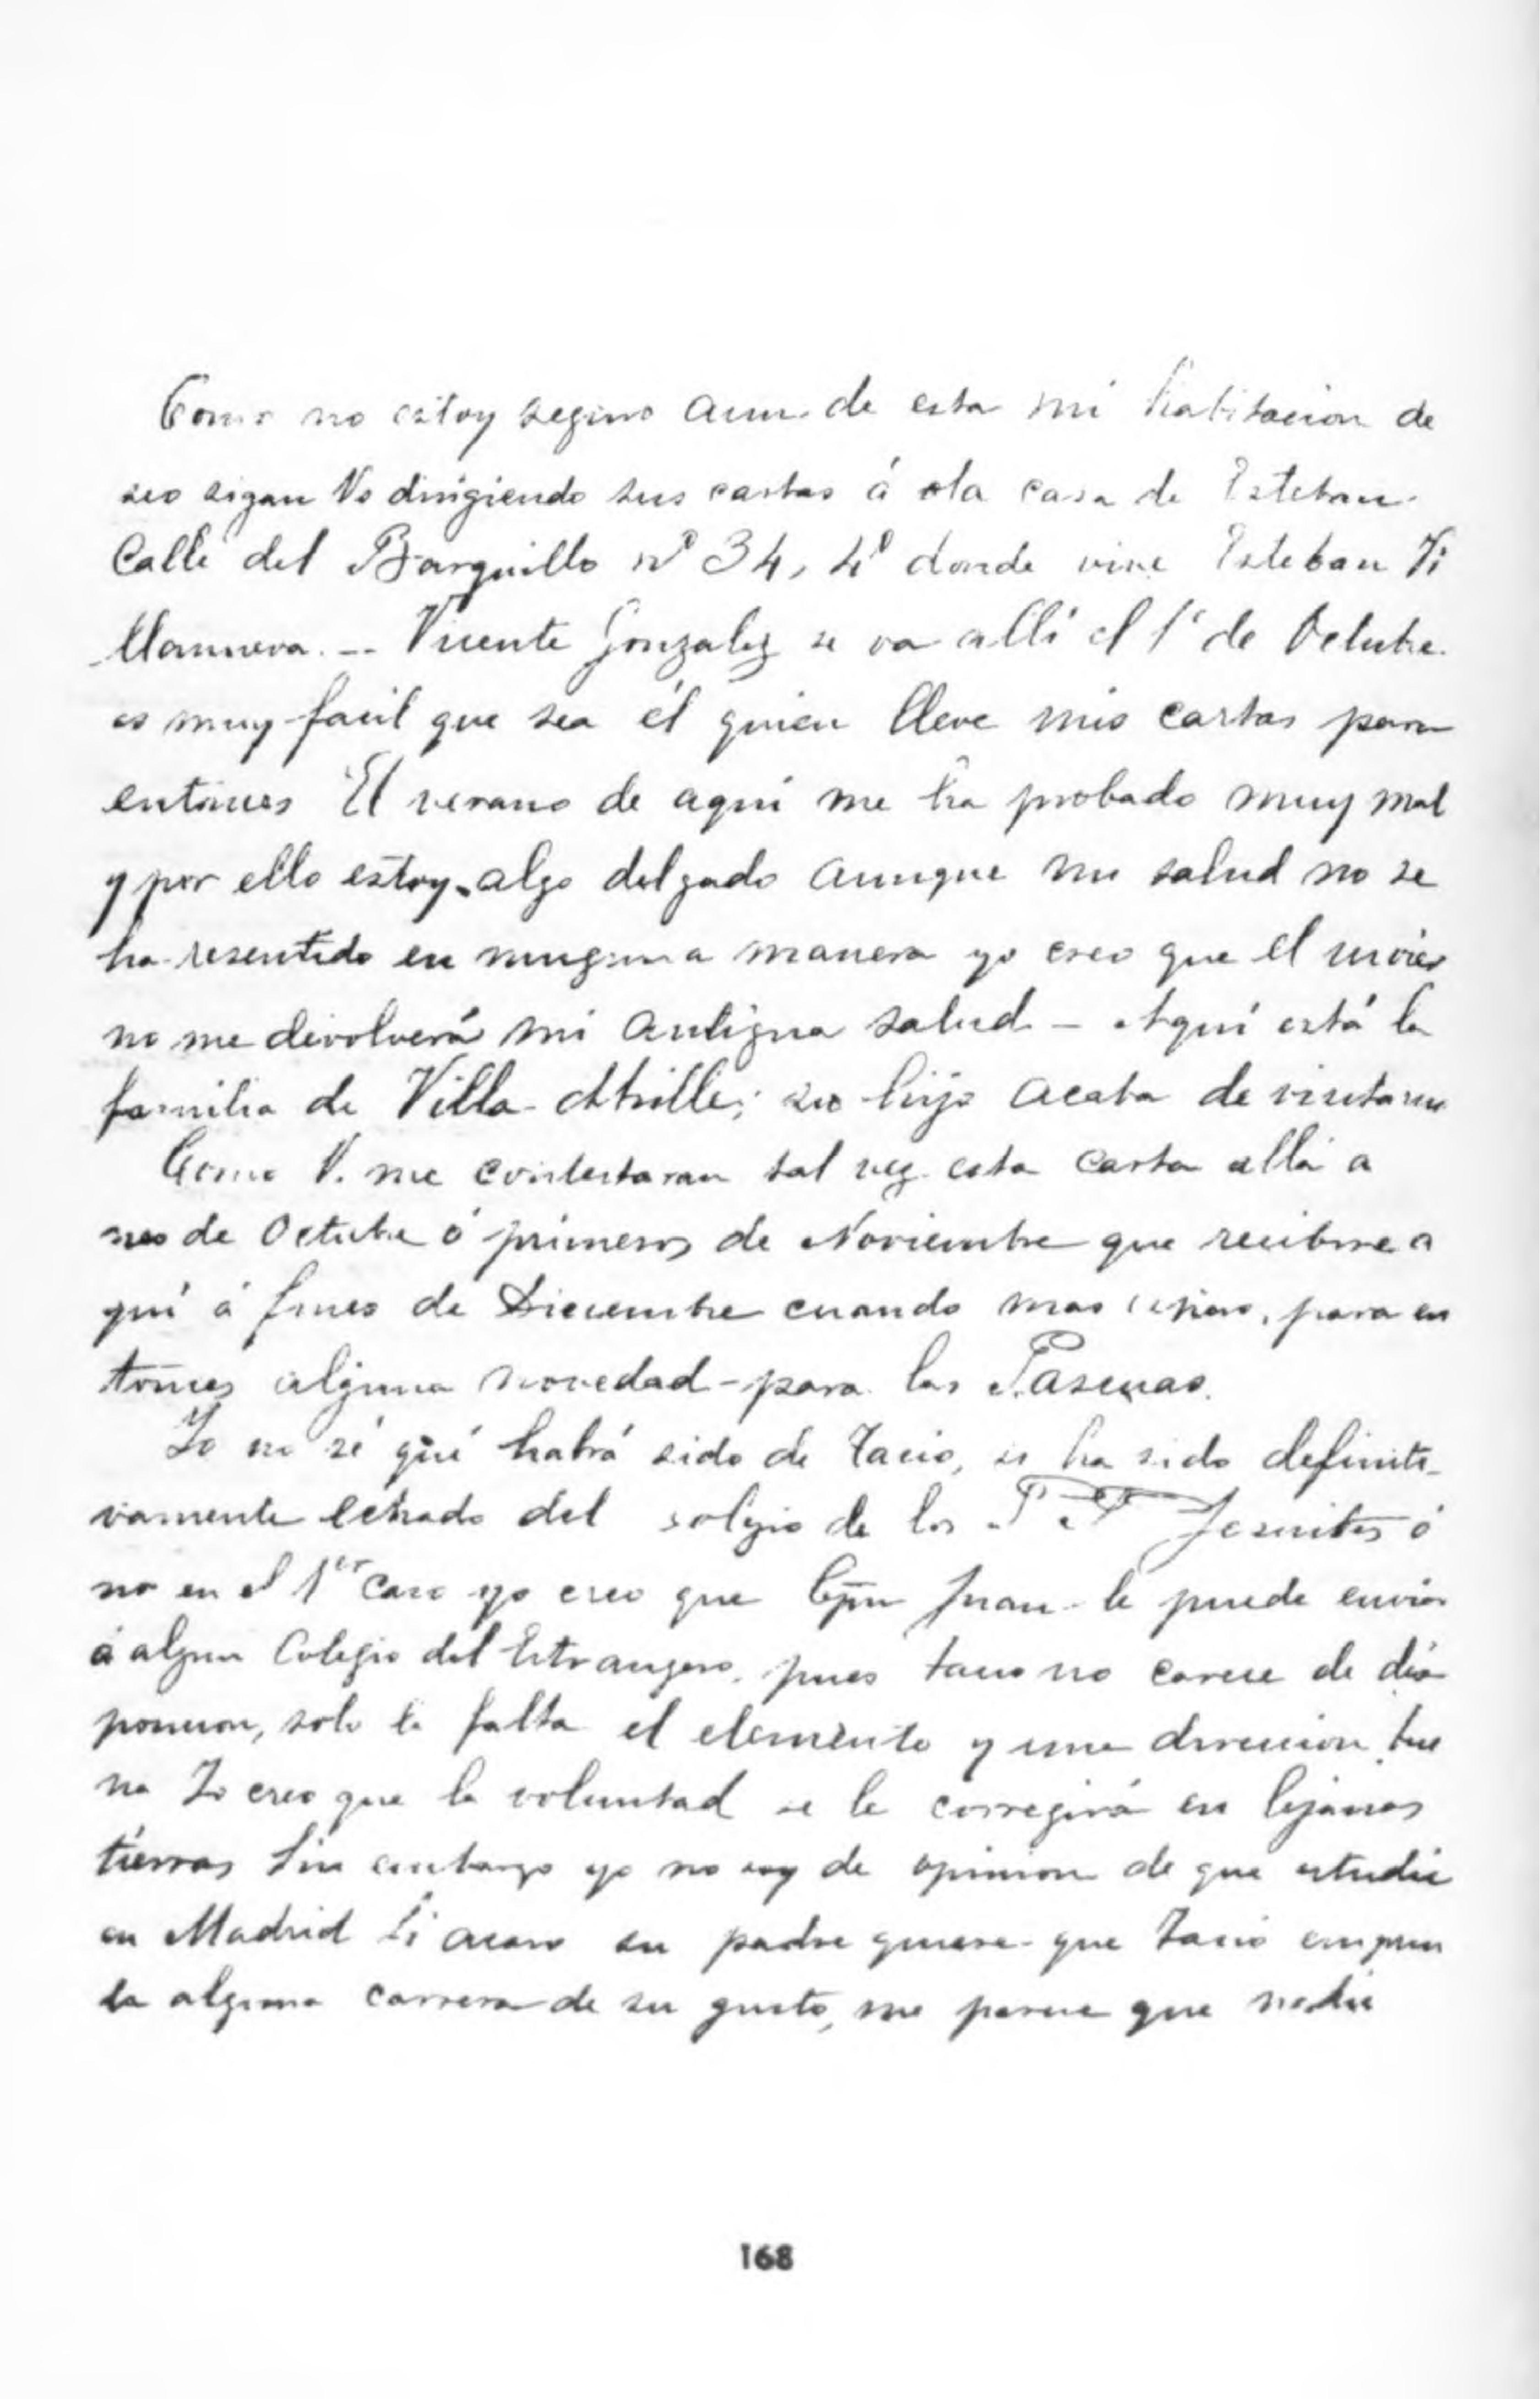 Como no estoy seguro aun de esta mi habitacion de
seo sigan Vs dirigiendo sus cartas á la casa de Esteban
Calle del Barquillo nº 34, 4º donde vive Esteban Vi
llanueva. — Vicente Gonzalez se va allí el 1º de Octubre
es muy facil que sea él quien lleve mis cartas para
entonces El verano de aqui me ha probado muy mal
y por ello estoy algo delgado aunque mi salud no se
ha resentido en ninguna manera yo creo que el invier
no me devolverá mi antigua salud – Aquí está la
familia de Villa-Abrille; su hijo acaba de visitarme
Como V. me contestaran tal vez esta carta allá a
de Octubre ó primeros de Noviembre que recibire a
quí á fines de Diciembre cuando mas espero, para en
tonces alguna novedad – para las Pascuas.
Yo no sé qué habrá sido de Tacio, si ha sido definiti-
vamente echado del colegio de los P P Jesuitas ó
no en el 1er caso yo creo que Cpn Juan le puede enviar
á algun Colegio del Estrangero, pues Tacio no carece de dis
posicion, solo le falta el elemento y una direccion bue
na Yo creo que la voluntad se le corregirá en lejanas
tierras Sin embargo yo no soy de opinion de que estudie
en Madrid Si acaso su padre quiere que Tacio empren
da alguna carrera de su gusto, me parece que nadie
168